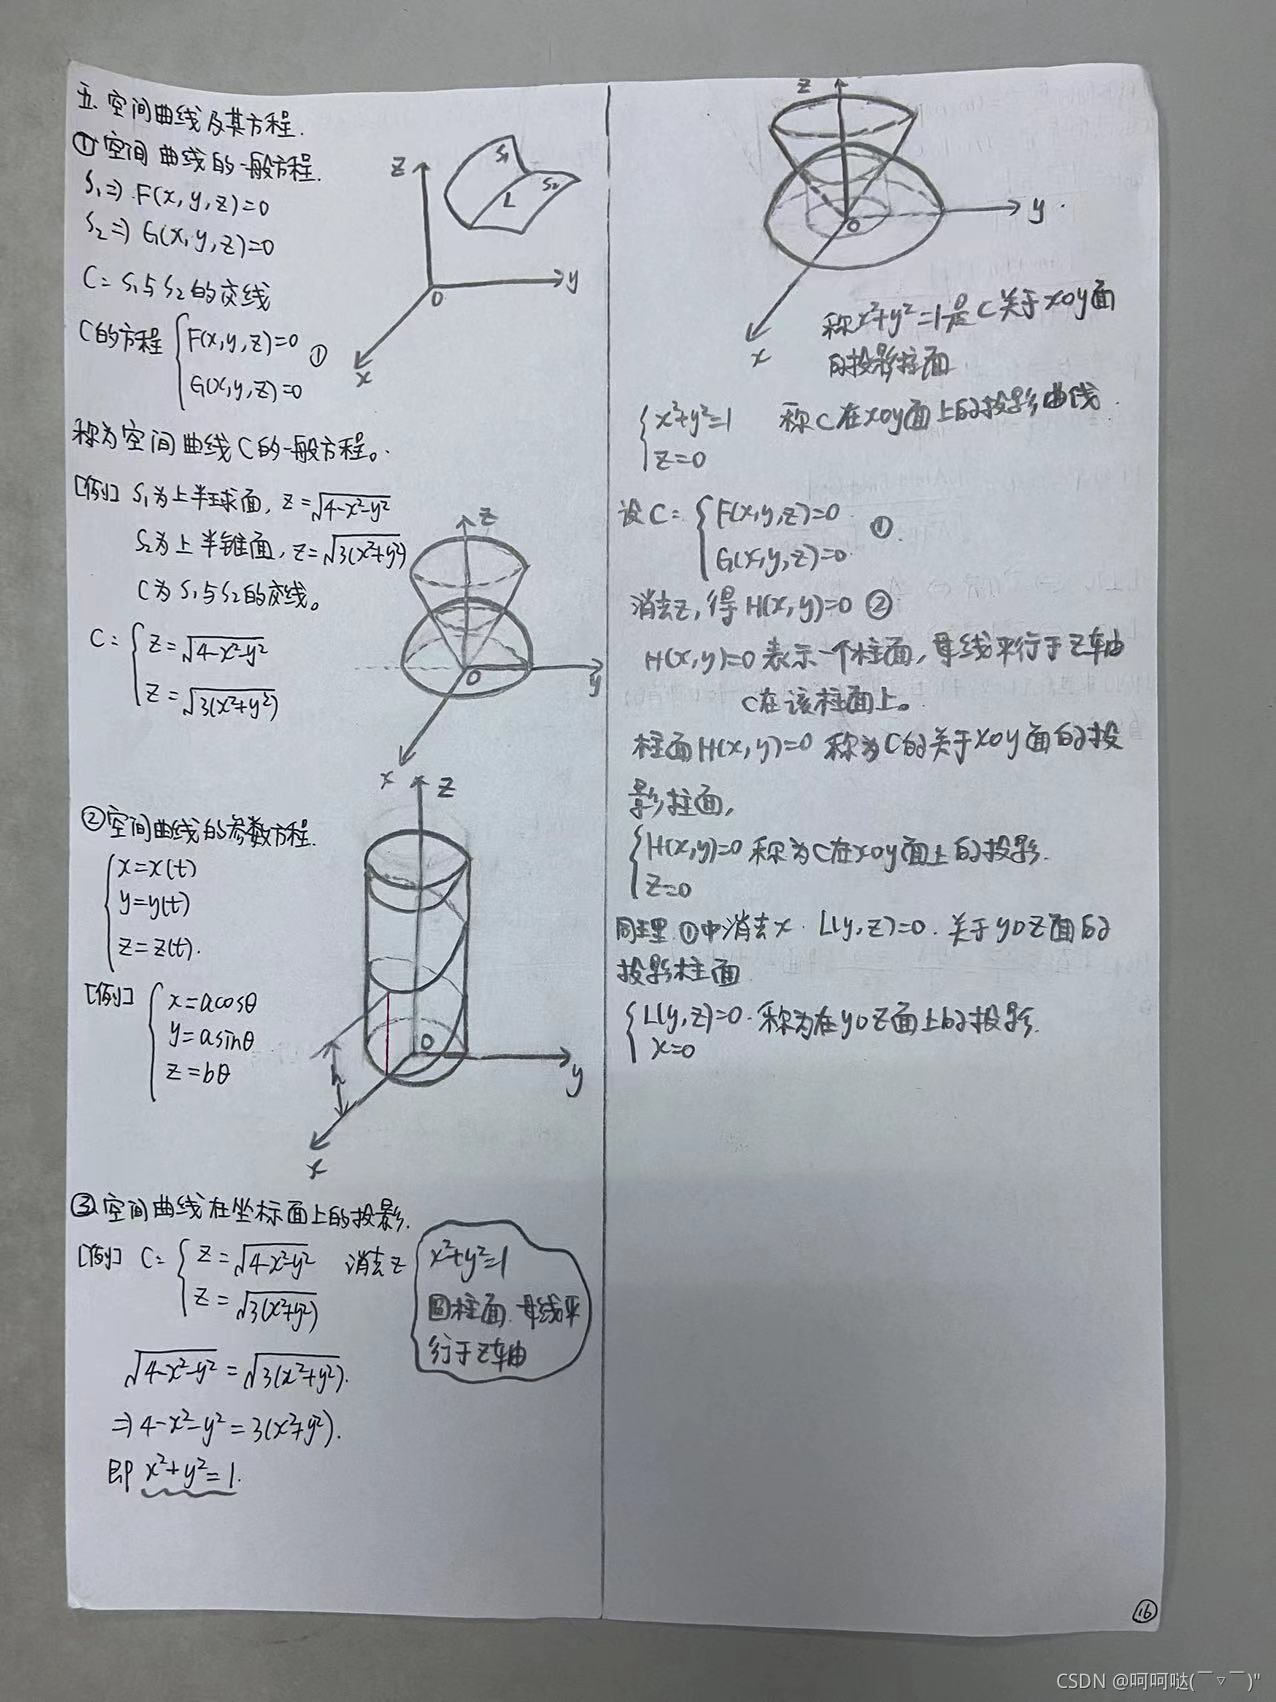 五. 空间曲线及其方程.
① 空间曲线的一般方程.
S₁⇒ F(x,y,z)=0
S₂⇒ G(x,y,z)=0
C=S₁与S₂的交线
C的方程 { F(x,y,z)=0 ①
G(x,y,z)=0
z
S₁
S₂
L
O
y
x
称为空间曲线C的一般方程。
[例] S₁为上半球面, z=√(4-x²-y²)
S₂为上半锥面, z=√(3(x²+y²))
C为S₁与S₂的交线。
C= { z=√(4-x²-y²)
z=√(3(x²+y²))
z
O
y
x
② 空间曲线的参数方程.
{ x=x(t)
y=y(t)
z=z(t).
[例] { x=acosθ
y=asinθ
z=bθ
z
O
h
y
x
③ 空间曲线在坐标面上的投影.
[例] C= { z=√(4-x²-y²) 消去z
z=√(3(x²+y²))
x²+y²=1
圆柱面. 母线平
行于z轴
√(4-x²-y²) = √(3(x²+y²)).
⇒ 4-x²-y²=3(x²+y²).
即 x²+y²=1.
z
O
y
x
称x²+y²=1是C关于xoy面
的投影柱面
{ x²+y²=1 称C在xoy面上的投影曲线.
z=0
设C= { F(x,y,z)=0 ①.
G(x,y,z)=0
消去z, 得H(x,y)=0 ②
H(x,y)=0 表示一个柱面, 母线平行于z轴
C在该柱面上。
柱面H(x,y)=0 称为C的关于xoy面的投
影柱面,
{ H(x,y)=0 称为C在xoy面上的投影.
z=0
同理. ①中消去x. L(y,z)=0. 关于yoz面的
投影柱面
{ L(y,z)=0. 称为在yoz面上的投影.
x=0
16
CSDN @呵呵哒(￣▽￣)"